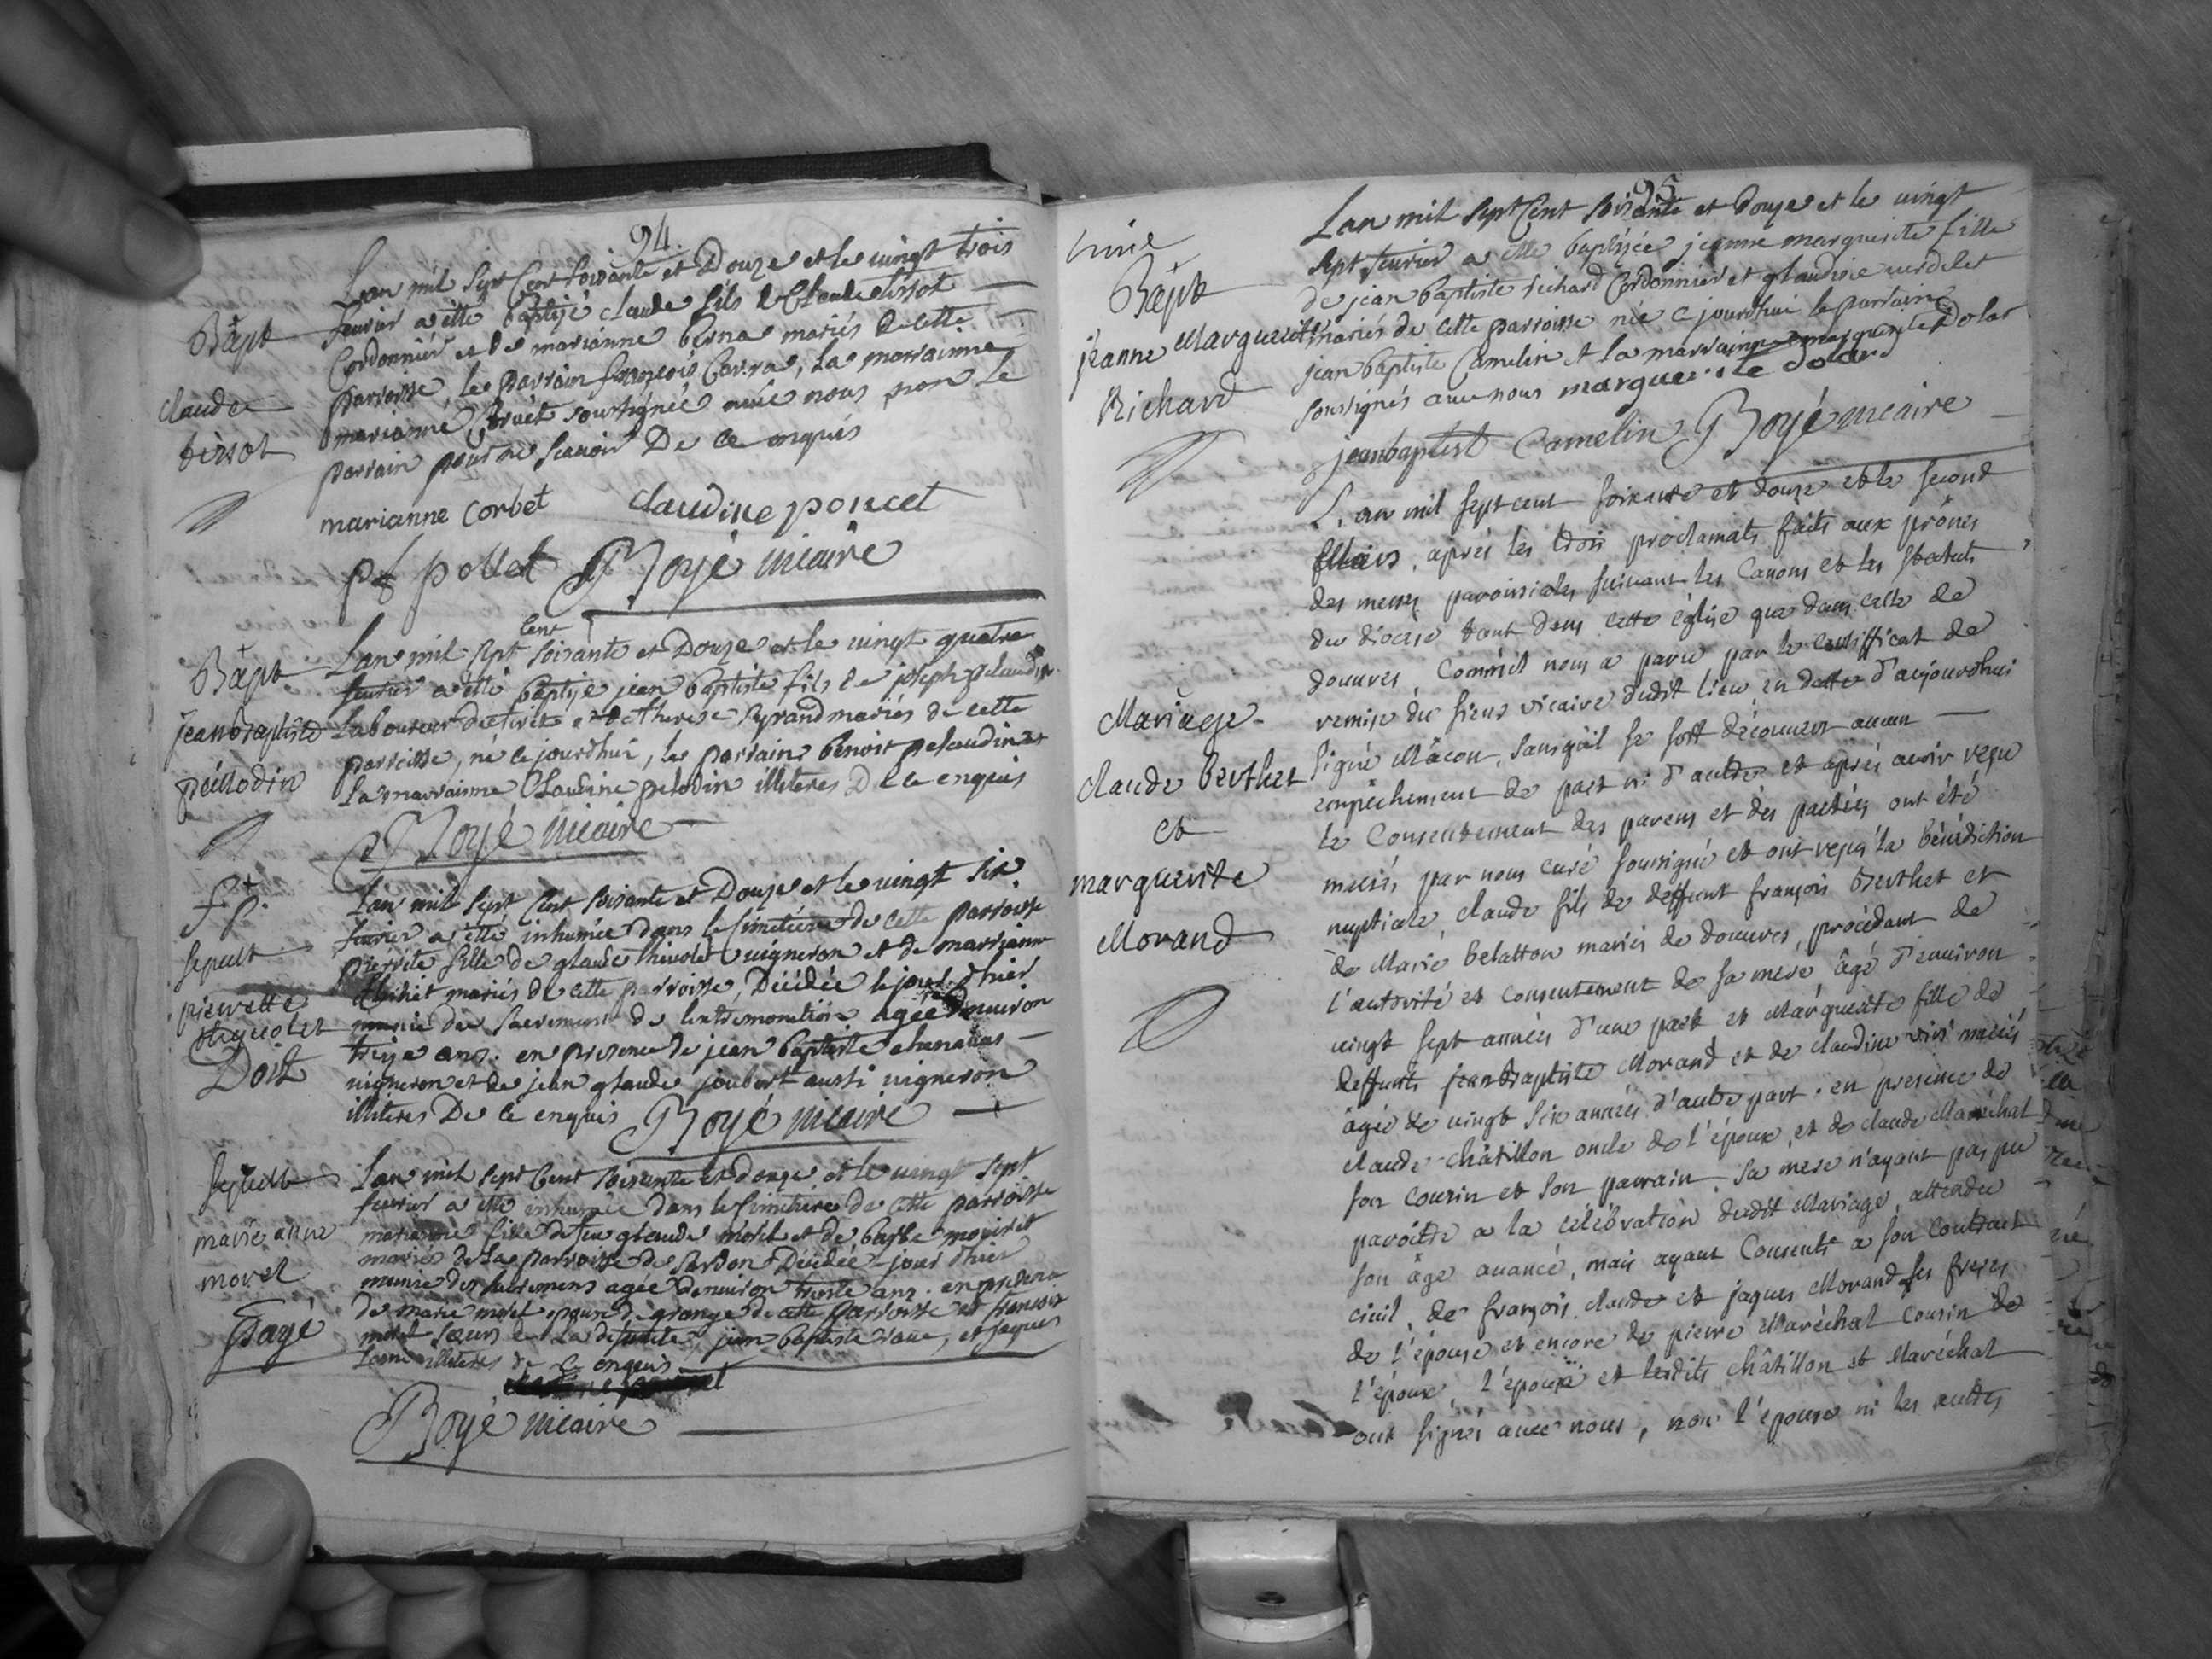 94.
Bapt
claude
tissot
Lan mil sept Cent soixante et Douze et le vingt trois
feurier a été baptisé claude fils de Claude tissot
Cordonnier et de marianne berna mariés de cette
parroisse, le parrain françois Carra, La marrainne
marianne soussignée avec nous non le
parrain pour ne scauoir De ce enquis
marianne corbet claudine poncet
pollet Boyé vicaire
Bapt
jean Baptiste
pelodin
Lan mil sept Cent soixante et Douze et le vingt quatre
feurier a été baptisé jean baptiste fils de joseph pelaudin
Laboureur de et de therese peyrand mariés de cette
parroisse, né ce jourdhui, le parrain benoit pelaudin et
La marrainne Claudine pelodin illiteres De ce enquis
Boyé vicaire
sepult
pierrette
Doit
Lan mil sept Cent soixante et Douze et le vingt six
feurier a été inhumée dans le Cimetiere de cette parroisse
pierrete fille de glaude thivolet vigneron et de marrianne
mariés de cette parroisse, Décédée le jour d'hier
munie du sacrement de lextremonction agée Denuiron
treize ans. en presence de jean baptiste chanauas
vigneron et de jean glaude joubert aussi vigneron
illiteres De ce enquis Boyé vicaire
sepult
marie anne
morel
payé
Lan mil sept Cent soixante et douze et le vingt sept
feurier a été inhumée dans le Cimetiere de cette parroisse
marianne fille de feu glaude morel et de barbe
mariés de la parroisse de Décédée jour d'hier
munie des sacremens agée Denuiron trente ans. en presence
de marie morel epouse de grange de cette parroisse et francoise
morel soeurs de La defunte, jean baptiste et jaques
illiteres de ce enquis
Boyé vicaire
95
Bapt
jeanne Marguerite
Richard
Lan mil sept Cent soixante et douze et le vingt
sept feurier a été baptisée jeanne marguerite fille
de jean baptiste richard Cordonnier et glaudine verdelet
mariés de cette parroisse née ce jourdhui le parrain
jean baptiste Camelin et la marrainne marguerite Dolar
soussignés auec nous marguerite dolar
jean baptist Camelin Boyé vicaire
Mariage
claude berthet
et
marguerite
Morand
L'an mil sept cent soixante et douze et le second
mars, aprés les trois proclamats faits aux prônes
des messes paroissiales suiuant les Canons et les statuts
du diocése tant dans cette église que dans celle de
douures, comm'il nous a paru par le certifficat de
remise du sieur vicaire dudit lieu en datte d'aujourdhui
signé Mâcon, sans qu'il se soit découuert aucun
empêchement de part ni d'autre et aprés auoir reçu
le consentement des parens et des parties ont été
mariés par nous curé soussigné et ont reçu la bénédiction
nuptiale, claude fils de deffunt françois Berthet et
de Marie belatton mariés de douures, procédant de
l'autorité et consentement de sa mere âgé d'enuiron
vingt sept années d'une part et Marguerite fille de
deffunts jean Baptiste Morand et de claudine mariés
âgée de vingt six années d'autre part. en presence de
claude châtillon oncle de l'époux, et de claude Maréchal
son cousin et son parrain. sa mere n'ayant pas pu
paroitre a la célébration dudit Mariage, attendu
son âge auancé, mais ayant consenti a son contract
ciuil, de françois claude et jaques Morand ses freres
de l'épouse et encore de pierre Maréchal cousin de
l'époux, l'époux et lesdits châtillon et Maréchal
ont signés auec nous, non l'épouse ni les autres